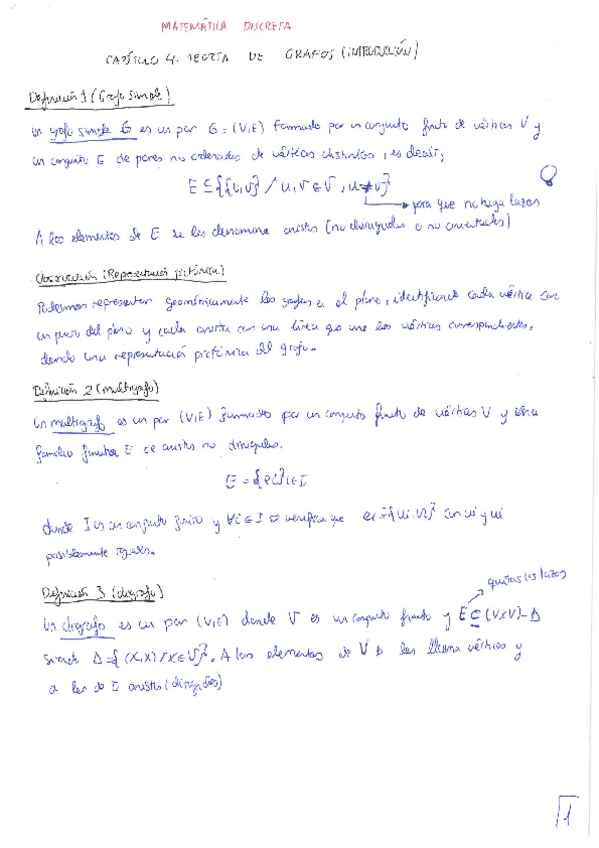 MATEMÁTICA DISCRETA
CAPÍTULO 4. TEORÍA DE GRAFOS (INTRODUCCIÓN)
Definición 1 (Grafo simple)
Un grafo simple G es un par G = (V,E) formado por un conjunto finito de vértices V y
un conjunto E de pares no ordenados de vértices distintos, es decir,
E ⊆ {{u,v} / u,v ∈ V, u ≠ v}
para que no haya lazos
A los elementos de E se les denomina aristas (no dirigidas o no orientadas)
Observación (Representación pictórica)
Podemos representar geométricamente los grafos en el plano, identificando cada vértice con
un punto del plano y cada arista con una línea que une los vértices correspondientes,
dando una representación pictórica del grafo.
Definición 2 (multigrafo)
Un multigrafo es un par (V,E) formado por un conjunto finito de vértices V y una
familia finita E de aristas no dirigidas.
E = {ei} i∈I
donde I es un conjunto finito y ∀i ∈ I se verifica que ei = {ui,vi} con ui y vi
posiblemente iguales.
Definición 3 (digrafo)
quitas los lazos
Un digrafo es un par (V,E) donde V es un conjunto finito y E ⊆ (V×V) - Δ
siendo Δ = {(x,x) / x ∈ V}. A los elementos de V se les llama vértices y
a los de E aristas (dirigidas)
1